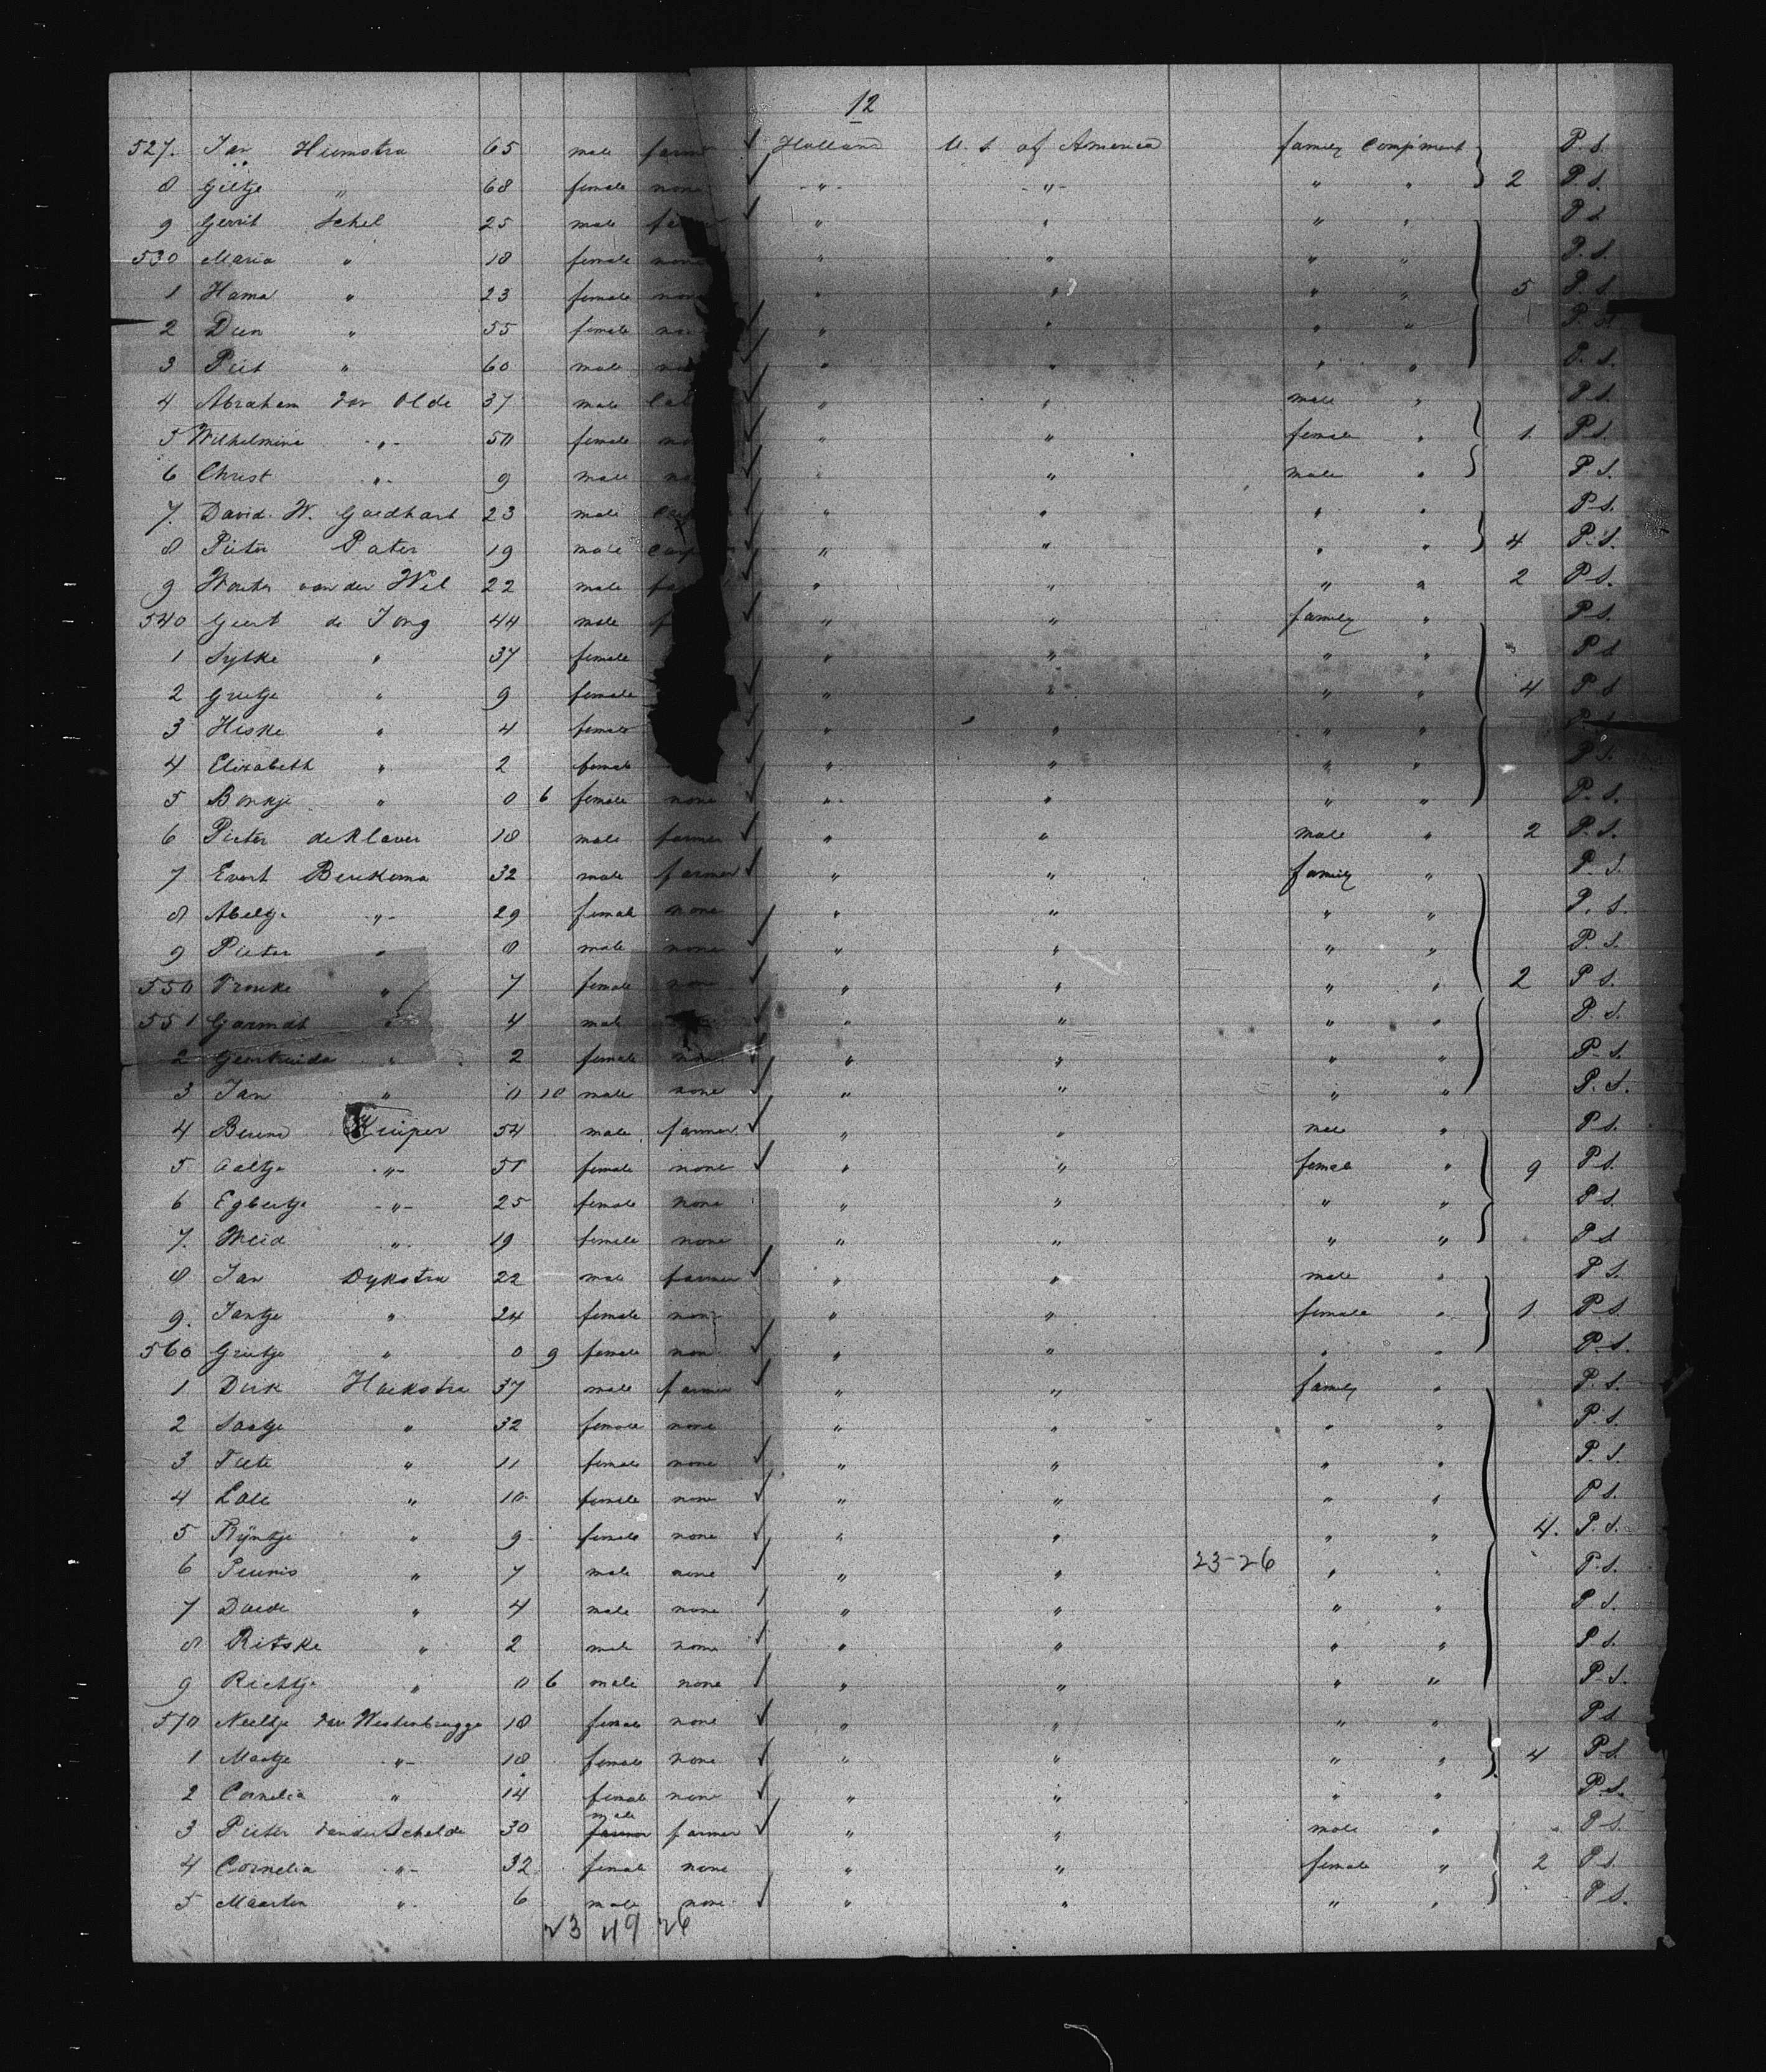 12
527. Jan Hiemstra 65 male farm Holland U. S. of America family Comp'ment P. S.
8 Geltje " 68 female none " " " " 2 P. S.
9 Gerrit Schel 25 male " " " " P S.
530 Maria " 18 female none " " " " P. S.
1 Hama " 23 female none " " " " 5 P S.
2 Dien " 55 female " " " " P. S.
3 Piet " 60 male " " " " P. S.
4 Abraham van Olde 37 male " " male " P S.
5 Wilhelmina " 50 female " " female " 1 P S.
6 Christ " 9 male " " male " P. S.
7. David W. Goedhart 23 male " " " " P S.
8 Pieter Pater 19 male Carp " " " " 4 P. S.
9 Wouter van der Wel 22 male " " " " 2 P S.
540 Geert de Jong 44 male " " family " P S.
1 Sytske " 37 female " " " " P S
2 Grietje " 9 female " " " " 4 P S
3 Hiske " 4 female " " " " P. S.
4 Elizabeth " 2 female " " " " P S.
5 Bonkje " 0 6 female none " " " " P. S.
6 Pieter de Klaver 18 male farmer " " male " 2 P. S.
7 Evert Beukema 32 male farmer " " family " P. S.
8 Abeltje " 29 female none " " " " P. S.
9 Pieter " 8 male none " " " " P. S.
550 Frouke " 7 female none " " " " 2 P S.
551 Garmdt " 4 male " " " " P. S.
2 Geertruida " 2 female none " " " " P. S.
3 Jan " 0 10 male none " " " " P. S.
4 Berend Kuiper 54 male farmer " " male " P S.
5 Aaltje " 51 female none " " female " 9 P S.
6 Egbertje " 25 female none " " " " P S.
7. " 19 female none " " " " P S
8 Jan Dykstra 22 male farmer " " male " P S.
9. Jantje " 24 female none " " female " 1 P S.
560 Grietje " 0 9 female none " " " " P S.
1 Dirk Hoekstra 37 male farmer " " family " P. S.
2 Saatje " 32 female none " " " " P S.
3 Tiete " 11 female none " " " " P. S.
4 Lolle " 10 female none " " " " P S.
5 Ryntje " 9 female none " " " " 4. P. S.
6 Teunis " 7 male none " " 23-26 " " P. S.
7 Doede " 4 male none " " " " P S.
8 Ritske " 2 male none " " " " P. S.
9 Richtje " 0 6 male none " " " " P. S.
570 Neeltje van Westenbrugge 18 female none " " " " P S
1 Maatje " 18 female none " " " " 4 P S
2 Cornelia " 14 female none " " " " P. S.
3 Pieter van der Schelde 30 male farmer farmer " " male " P S
4 Cornelia " 32 female none " " female " 2 P S.
5 Maarten " 6 male none " " " " P S.
23 49 26